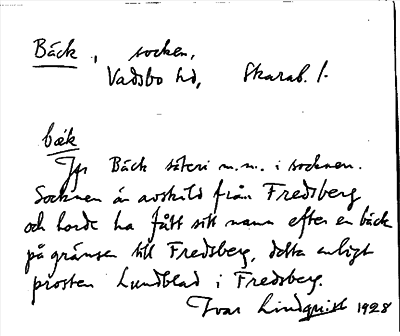 Bäck, socken,
Vadsbo hd, Skarab. l.
bæk
Jfr Bäck säteri m.m. i socknen.
Socknen är avskild från Fredsberg
och torde ha fått sitt namn efter en bäck
på gränsen till Fredsberg, detta enligt
prosten Lundblad i Fredsberg.
Ivar Lindquist 1928